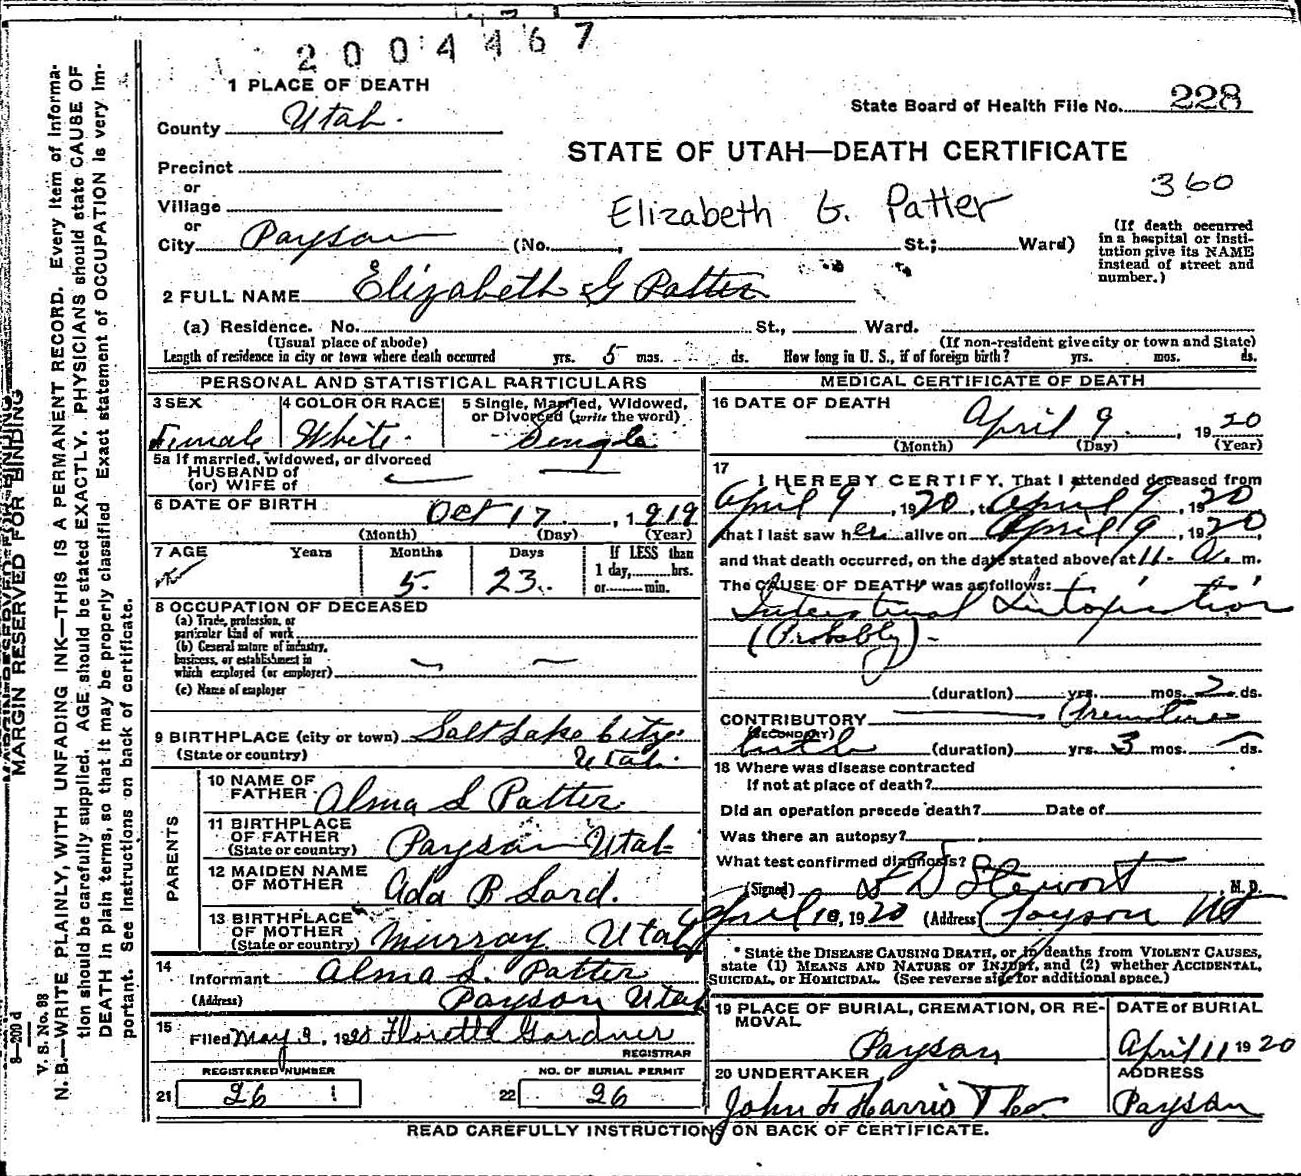 2004467
1 PLACE OF DEATH
State Board of Health File No. 228
County Utah.
STATE OF UTAH—DEATH CERTIFICATE
Precinct
or
360
Village
Elizabeth G. Patter
or
City Payson (No. , St.; Ward)
(If death occurred
in a hospital or insti-
tution give its NAME
instead of street and
number.)
2 FULL NAME Elizabeth G Patter
(a) Residence. No. St., Ward.
(Usual place of abode) (If non-resident give city or town and State)
Length of residence in city or town where death occurred yrs. 5 mos. ds. How long in U. S., if of foreign birth? yrs. mos. ds.
PERSONAL AND STATISTICAL PARTICULARS
3 SEX
Female
4 COLOR OR RACE
White.
5 Single, Married, Widowed,
or Divorced (write the word)
Single
5a If married, widowed, or divorced
HUSBAND of
(or) WIFE of
6 DATE OF BIRTH
Oct 17 , 1919
(Month) (Day) (Year)
7 AGE Years Months Days If LESS than
5. 23. 1 day, hrs.
or min.
8 OCCUPATION OF DECEASED
(a) Trade, profession, or
particular kind of work
(b) General nature of industry,
business, or establishment in
which employed (or employer)
(c) Name of employer
9 BIRTHPLACE (city or town) Salt Lake City
(State or country) Utah.
PARENTS
10 NAME OF
FATHER Alma L Patter
11 BIRTHPLACE
OF FATHER
(State or country) Payson Utah
12 MAIDEN NAME
OF MOTHER Ada B Lard.
13 BIRTHPLACE
OF MOTHER
(State or country) Murray Utah
14
Informant Alma L. Patter
(Address) Payson Utah
15
Filed May 3, 1920 Florett Gardner
REGISTRAR
REGISTERED NUMBER NO. OF BURIAL PERMIT
21 26 22 26
MEDICAL CERTIFICATE OF DEATH
16 DATE OF DEATH
April 9 , 1920
(Month) (Day) (Year)
17
I HEREBY CERTIFY, That I attended deceased from
April 9 , 1920, to April 9, 1920
that I last saw her alive on April 9, 1920,
and that death occurred, on the date stated above, at 11- a. m.
The CAUSE OF DEATH* was as follows:
Intestinal Intoxication
(Probably)-
(duration) yrs. mos. 2 ds.
CONTRIBUTORY Premature
(SECONDARY)
birth (duration) yrs. 3 mos. ds.
18 Where was disease contracted
If not at place of death?
Did an operation precede death? Date of
Was there an autopsy?
What test confirmed diagnosis?
(Signed) L D Stewart, M. D.
April 10, 1920 (Address) Payson Ut
* State the DISEASE CAUSING DEATH, or in deaths from VIOLENT CAUSES,
state (1) MEANS AND NATURE OF INJURY, and (2) whether ACCIDENTAL,
SUICIDAL, or HOMICIDAL. (See reverse side for additional space.)
19 PLACE OF BURIAL, CREMATION, OR RE-
MOVAL
Payson
DATE of BURIAL
April 11 1920
20 UNDERTAKER
John F Harris
ADDRESS
Payson
READ CAREFULLY INSTRUCTIONS ON BACK OF CERTIFICATE.
MARGIN RESERVED FOR BINDING
V. S. No. 98
8—200 d
N. B.—WRITE PLAINLY, WITH UNFADING INK—THIS IS A PERMANENT RECORD. Every item of informa-
tion should be carefully supplied. AGE should be stated EXACTLY. PHYSICIANS should state CAUSE OF
DEATH in plain terms, so that it may be properly classified. Exact statement of OCCUPATION is very im-
portant. See instructions on back of certificate.